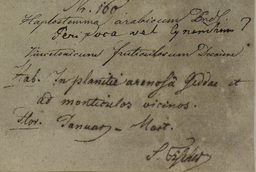 N. 160.
Haplostemma arabicum Endl.
Periploca vel Cynanchum?
Vincetoxicum fruticulosum Decaisne
Hab. In planitie arenosâ Giddae et
ad monticulos vicinos.
Flor. Januar. - Mart.